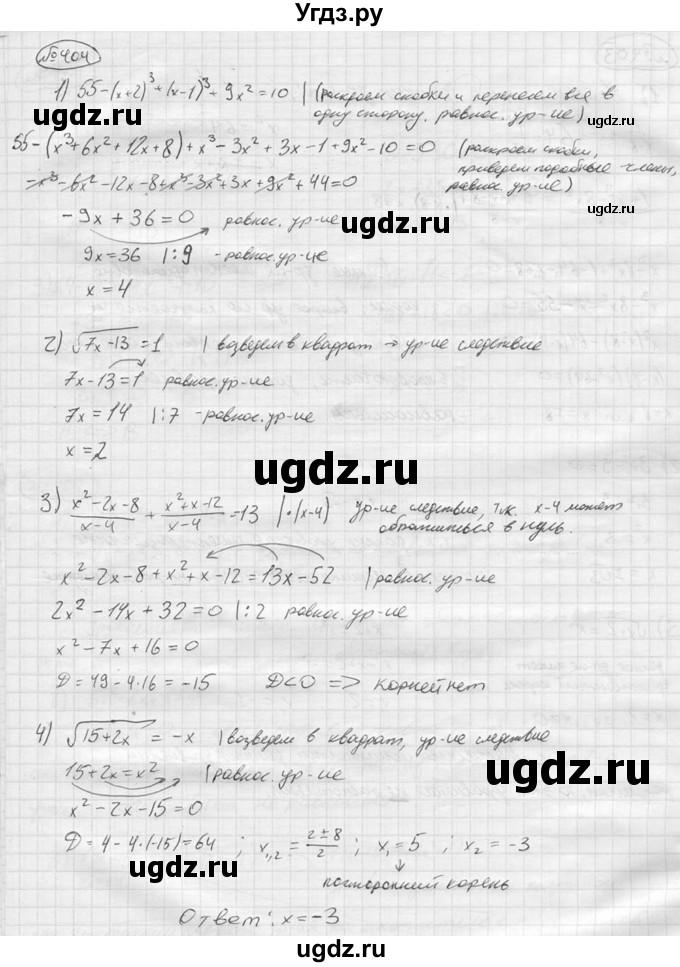 Угдз.ру
№404
1) 55-(x+2)³+(x-1)³+9x²=10 | (раскроем скобки и перенесем все в одну сторону. равнос. ур-ие)
55-(x³+6x²+12x+8)+x³-3x²+3x-1+9x²-10=0 (раскроем скобки, приведем подобные члены, равнос. ур-ие)
-x³-6x²-12x-8+x³-3x²+3x+9x²+44=0
-9x+36=0 равнос. ур-ие
9x=36 |:9 -равнос. ур-ие
x=4
2) √7x-13=1 | возведем в квадрат → ур-ие следствие
7x-13=1 равнос. ур-ие
7x=14 |:7 -равнос. ур-ие
x=2
ugdz.ru
3) (x²-2x-8)/(x-4) + (x²+x-12)/(x-4) =13 | ·(x-4) ур-ие следствие, т.к. x-4 может обратиться в нуль.
x²-2x-8+x²+x-12=13x-52 | равнос. ур-ие
2x²-14x+32=0 |:2 равнос. ур-ие
x²-7x+16=0
D=49-4·16=-15 D<0 => корней нет
4) √15+2x = -x | возведем в квадрат, ур-ие следствие
15+2x=x² | равнос. ур-ие
x²-2x-15=0
D=4-4·(-15)=64 ; x₁,₂=(2±8)/2 ; x₁=5 ; x₂=-3
посторонний корень
Ответ: x=-3
ugdz.ru